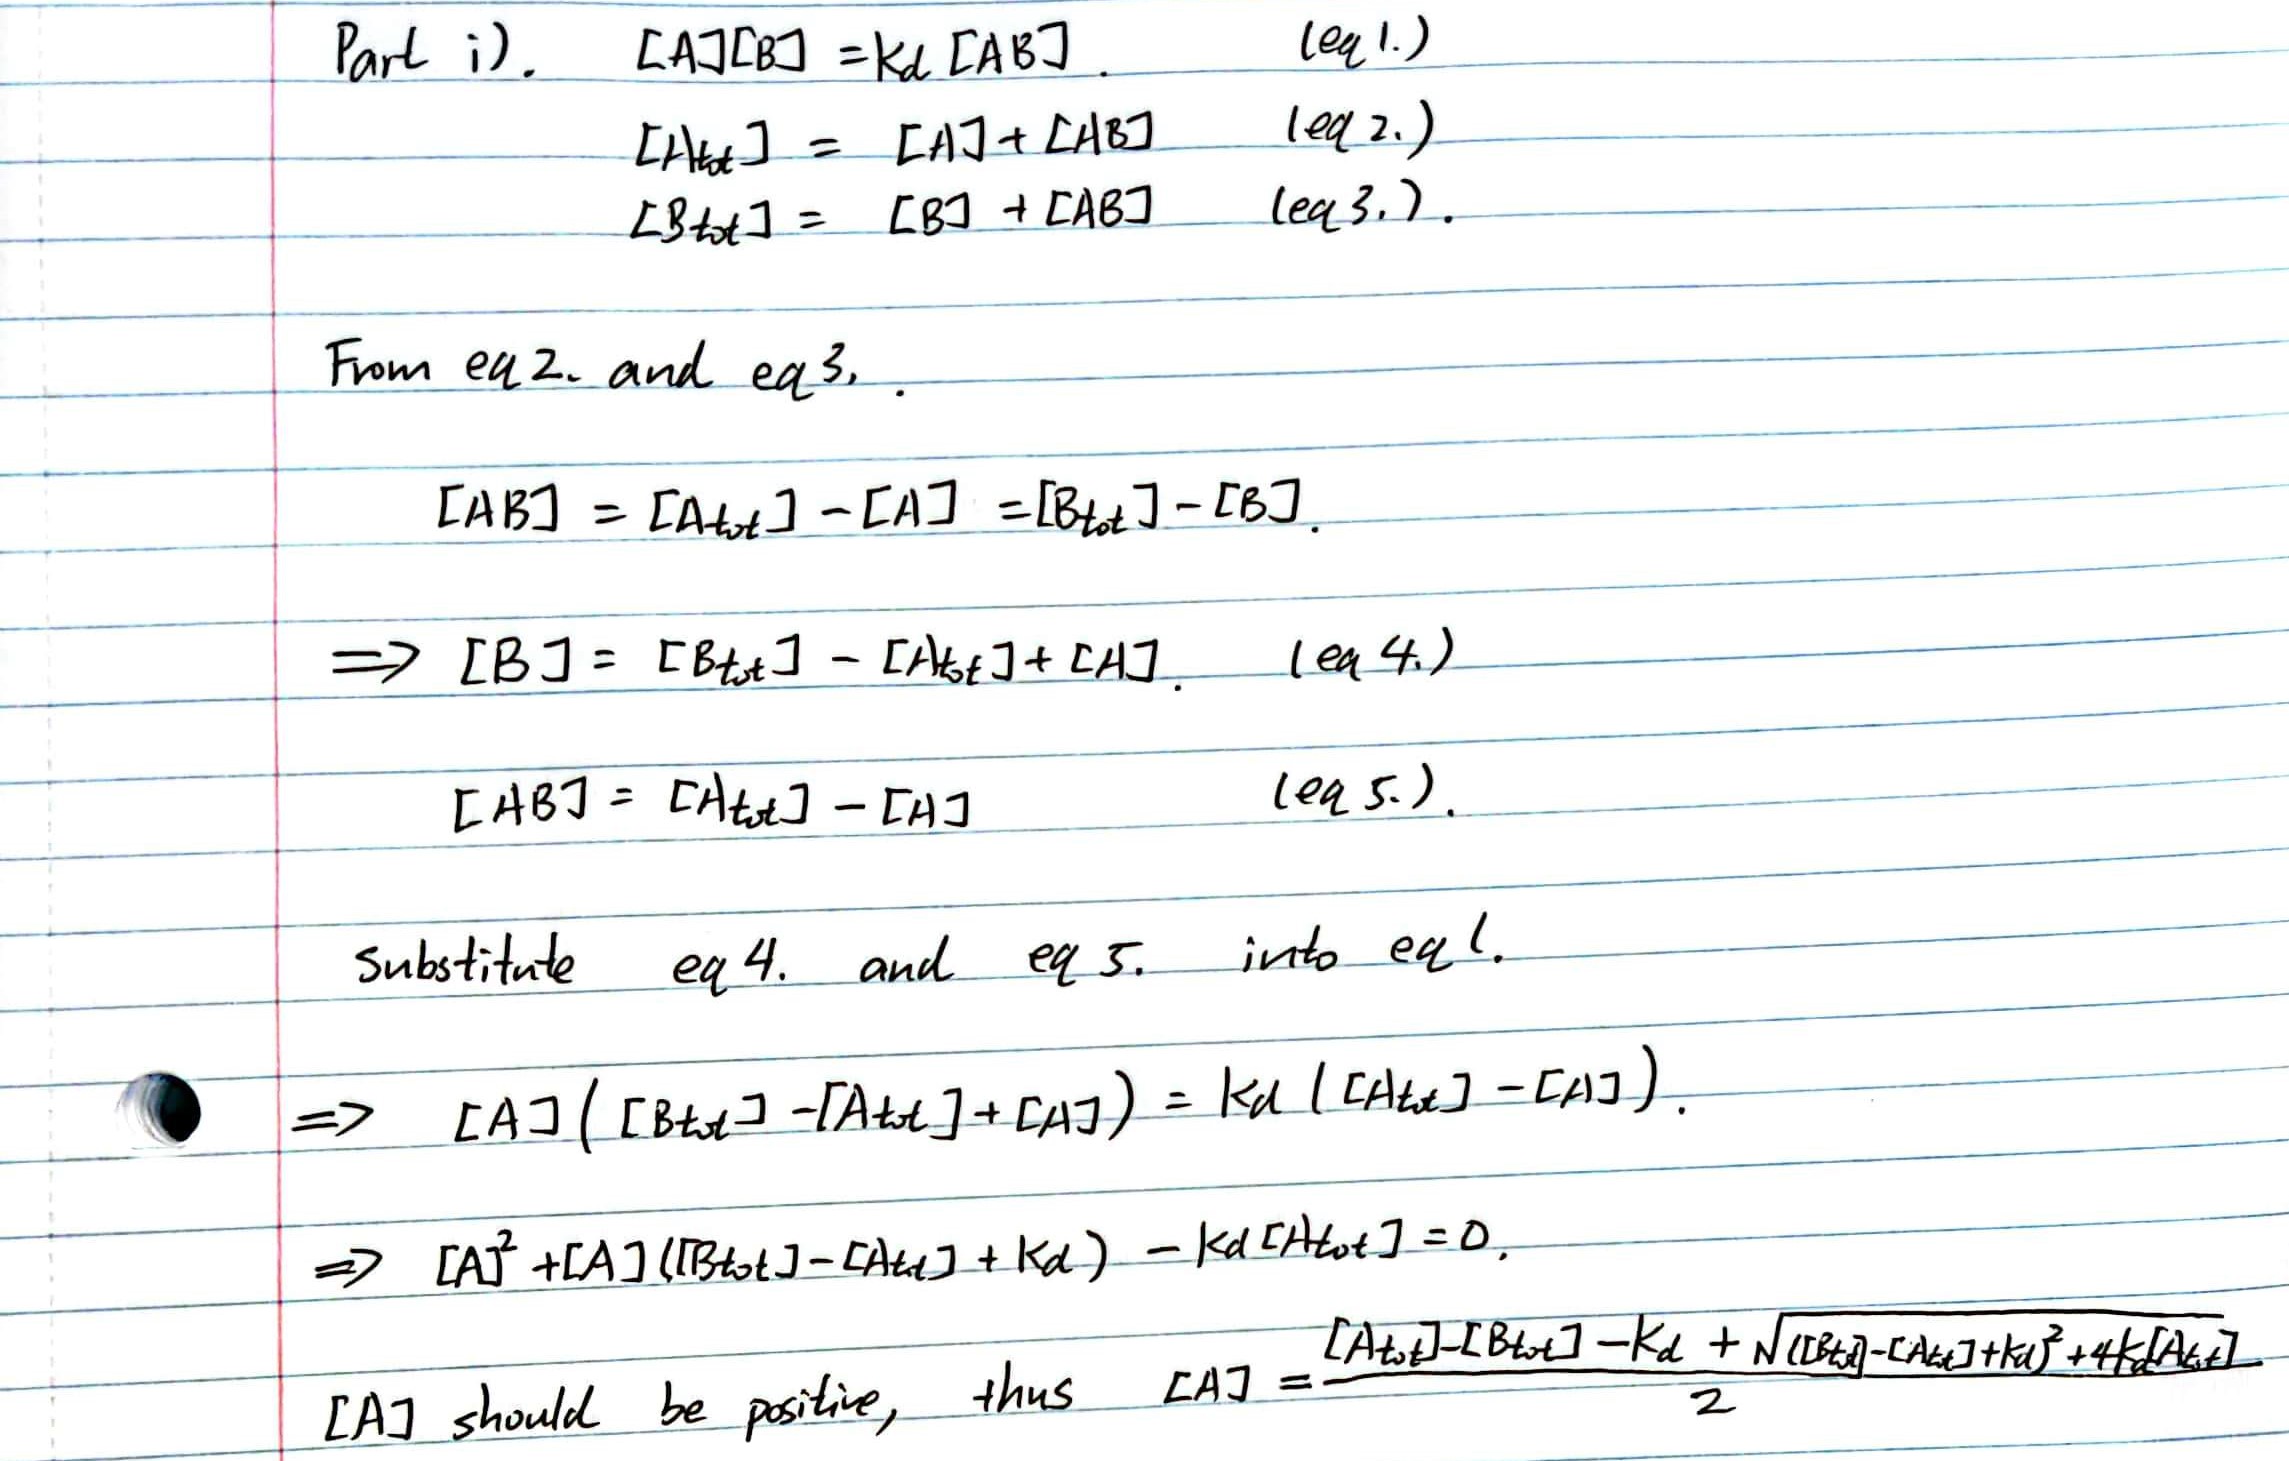 Part i). [A][B] = Kd [AB]. (eq 1.)
[Atot] = [A] + [AB] (eq 2.)
[Btot] = [B] + [AB] (eq 3.).
From eq 2. and eq 3,.
[AB] = [Atot] - [A] = [Btot] - [B].
⇒ [B] = [Btot] - [Atot] + [A]. (eq 4.)
[AB] = [Atot] - [A] (eq 5.).
substitute eq 4. and eq 5. into eq 1.
⇒ [A]([Btot] - [Atot] + [A]) = Kd ([Atot] - [A]).
⇒ [A]² + [A]([Btot] - [Atot] + Kd) - Kd[Atot] = 0.
[A] should be positive, thus [A] = ([Atot] - [Btot] - Kd + √(([Btot] - [Atot] + Kd)² + 4Kd[Atot])) / 2